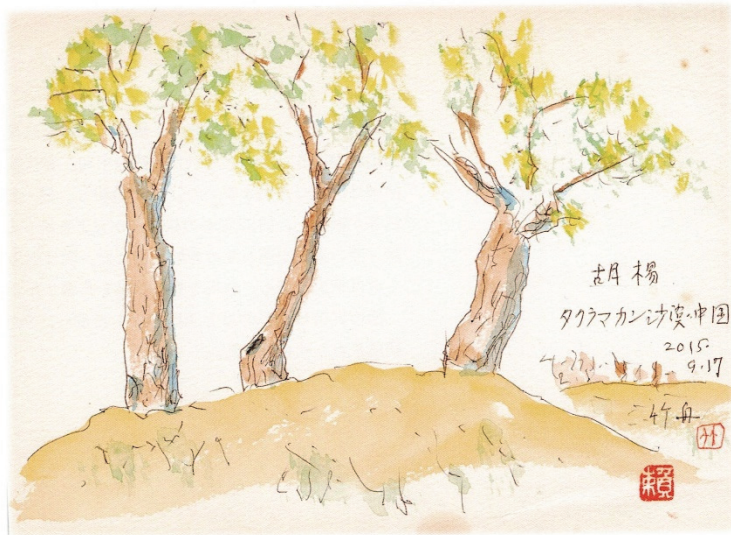 胡楊
タクラマカン沙漠・中国
2015.
9.17
竹舟
竹
頼